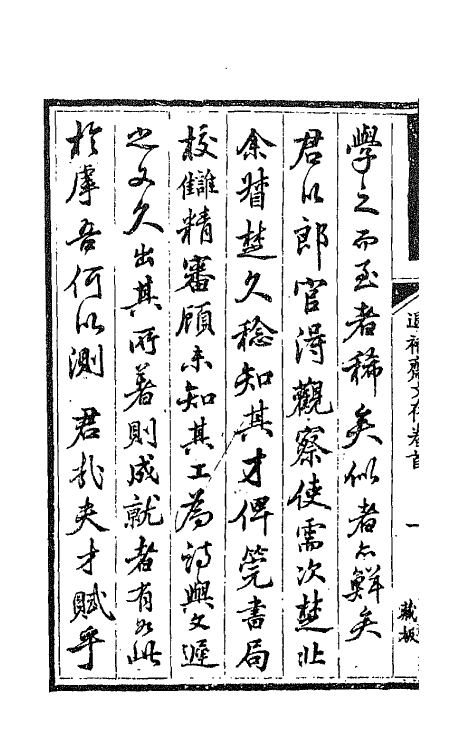 學之而至者稀矣似者亦鮮矣
君以郎官得觀察使需次楚北
余督楚久稔知其才俾筦書局
校讎精審顧未知其工為詩與文遲
之又久出其所著則成就者有如此
於虖吾何以測 君哉夫才賦乎
補齋文存卷首
一
藏板